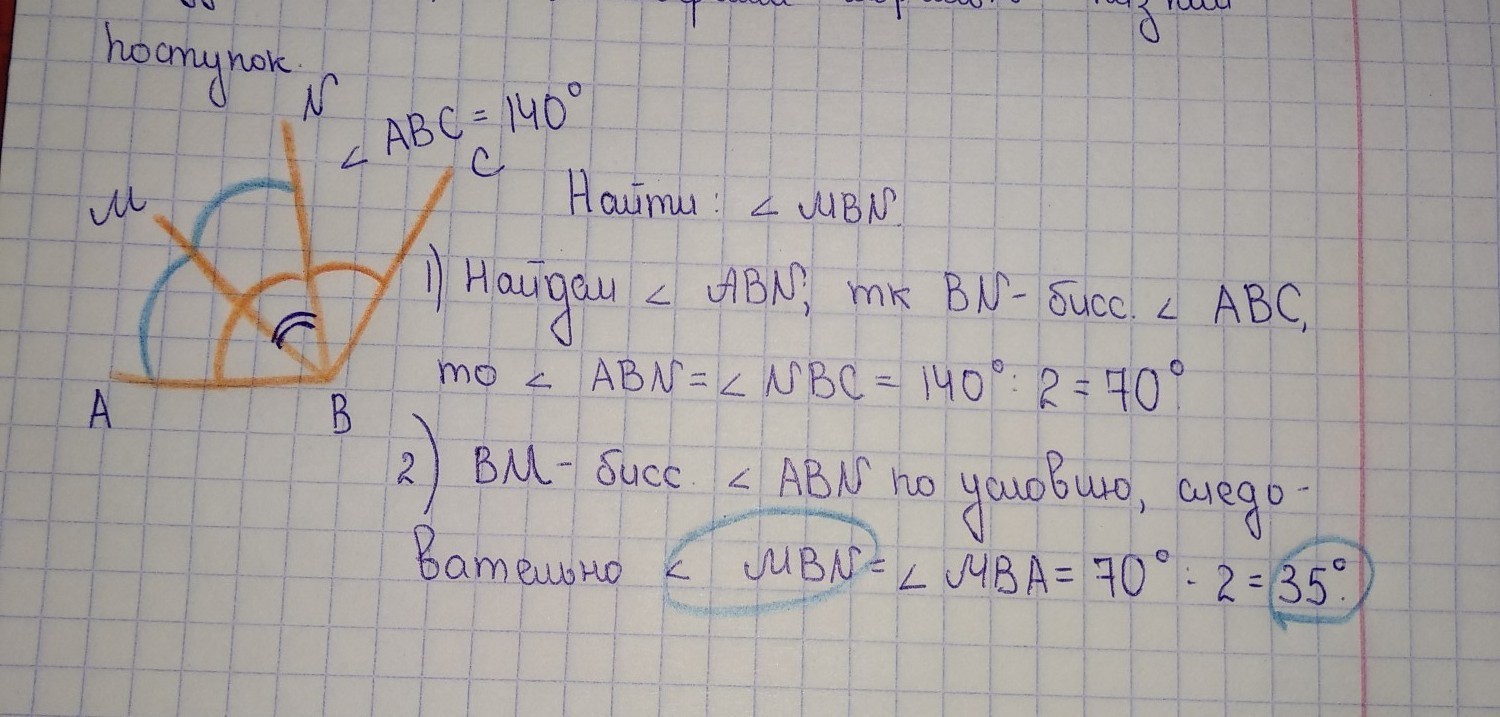 поступок.
N
∠ ABC = 140°
C
M
Найти: ∠ MBN.
1) Найдем ∠ ABN; тк BN - бисс. ∠ ABC,
то ∠ ABN = ∠ NBC = 140° : 2 = 70°
A
B
2) BM - бисс. ∠ ABN по условию, следо-
вательно ∠ MBN = ∠ MBA = 70° : 2 = 35°.